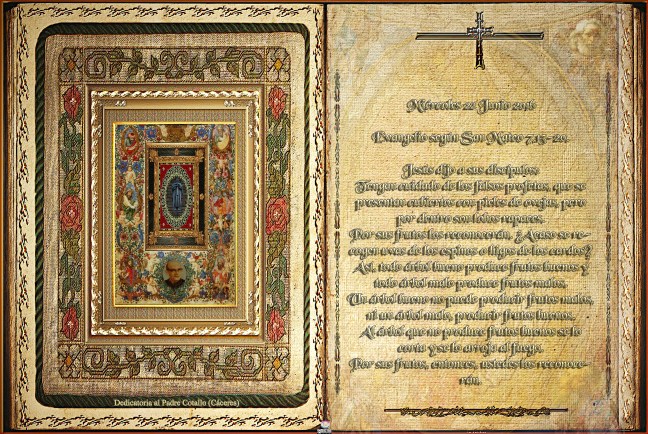 Dedicatoria al Padre Cotallo (Cáceres)
Miércoles 22 Junio 2016
Evangelio según San Mateo 7,15-20.
Jesús dijo a sus discípulos:
Tengan cuidado de los falsos profetas, que se
presentan cubiertos con pieles de ovejas, pero
por dentro son lobos rapaces.
Por sus frutos los reconocerán. ¿Acaso se re-
cogen uvas de los espinos o higos de los cardos?
Así, todo árbol bueno produce frutos buenos y
todo árbol malo produce frutos malos.
Un árbol bueno no puede producir frutos malos,
ni un árbol malo, producir frutos buenos.
Al árbol que no produce frutos buenos se lo
corta y se lo arroja al fuego.
Por sus frutos, entonces, ustedes los reconoce-
rán.